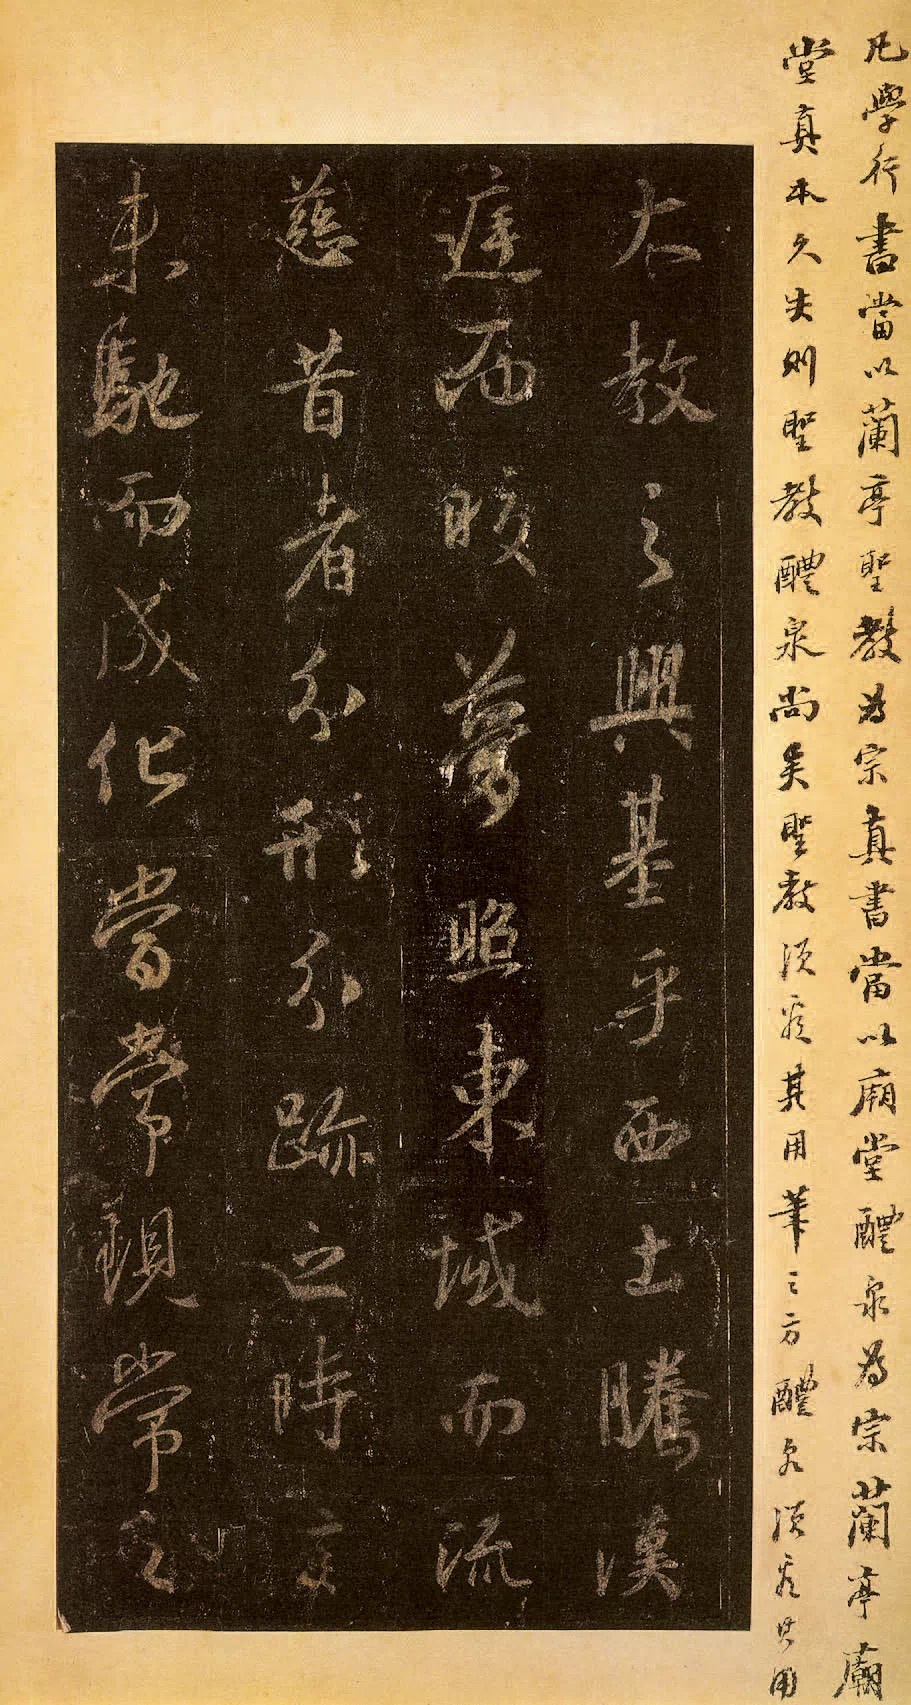 凡學行書當以蘭亭聖教為宗真書當以廟堂醴泉為宗蘭亭廟
堂真本久失則聖教醴泉尚矣聖教須其用筆之方醴泉須其用
大教之興基乎西土騰漢
庭而皎夢照東域而流
慈昔者分形分跡之時言
未馳而成化當常現常之